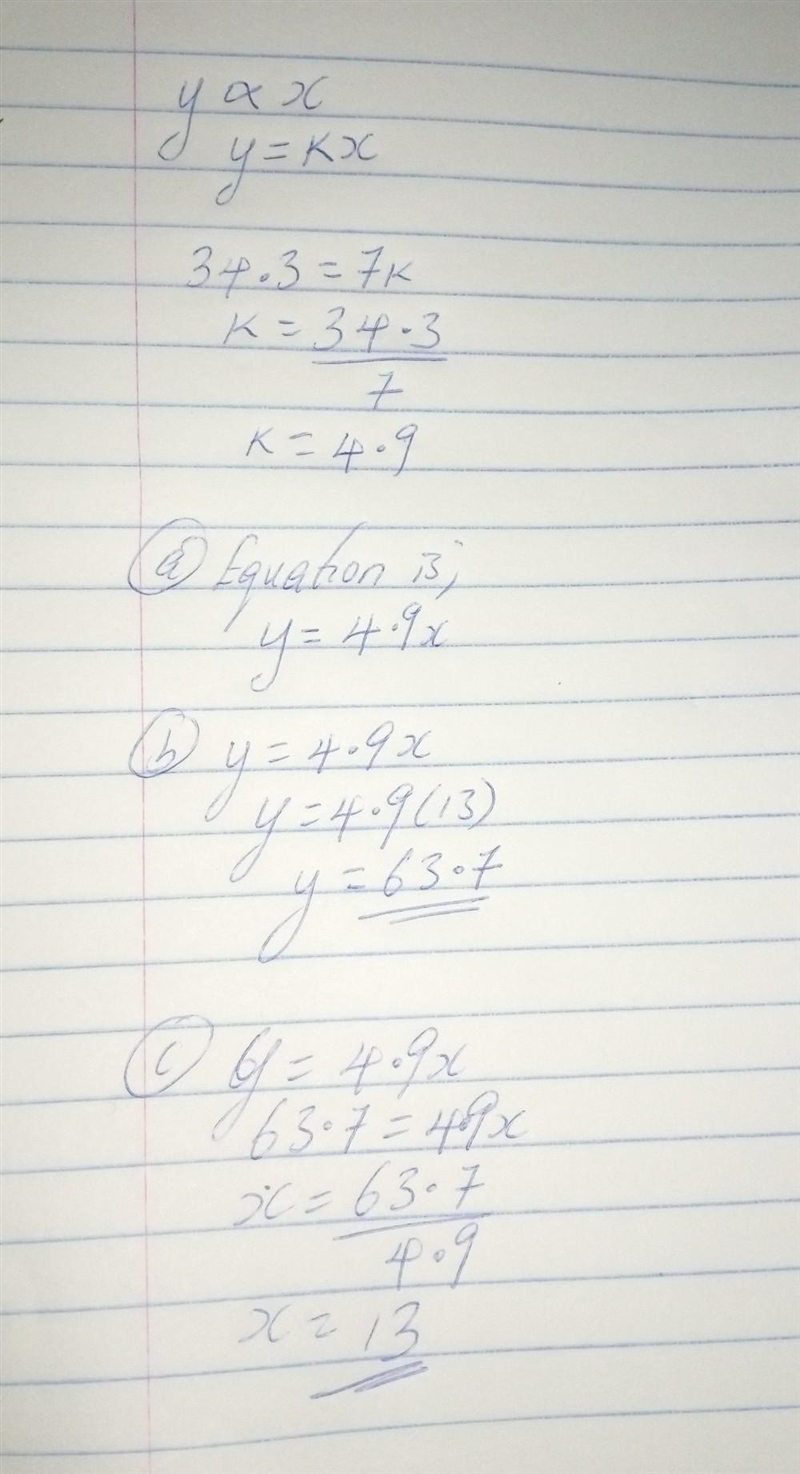 y ∝ x
y = kx
34.3 = 7k
k = 34.3
7
k = 4.9
(a) Equation is,
y = 4.9x
(b) y = 4.9x
y = 4.9(13)
y = 63.7
(c) y = 4.9x
63.7 = 4.9x
x = 63.7
4.9
x = 13